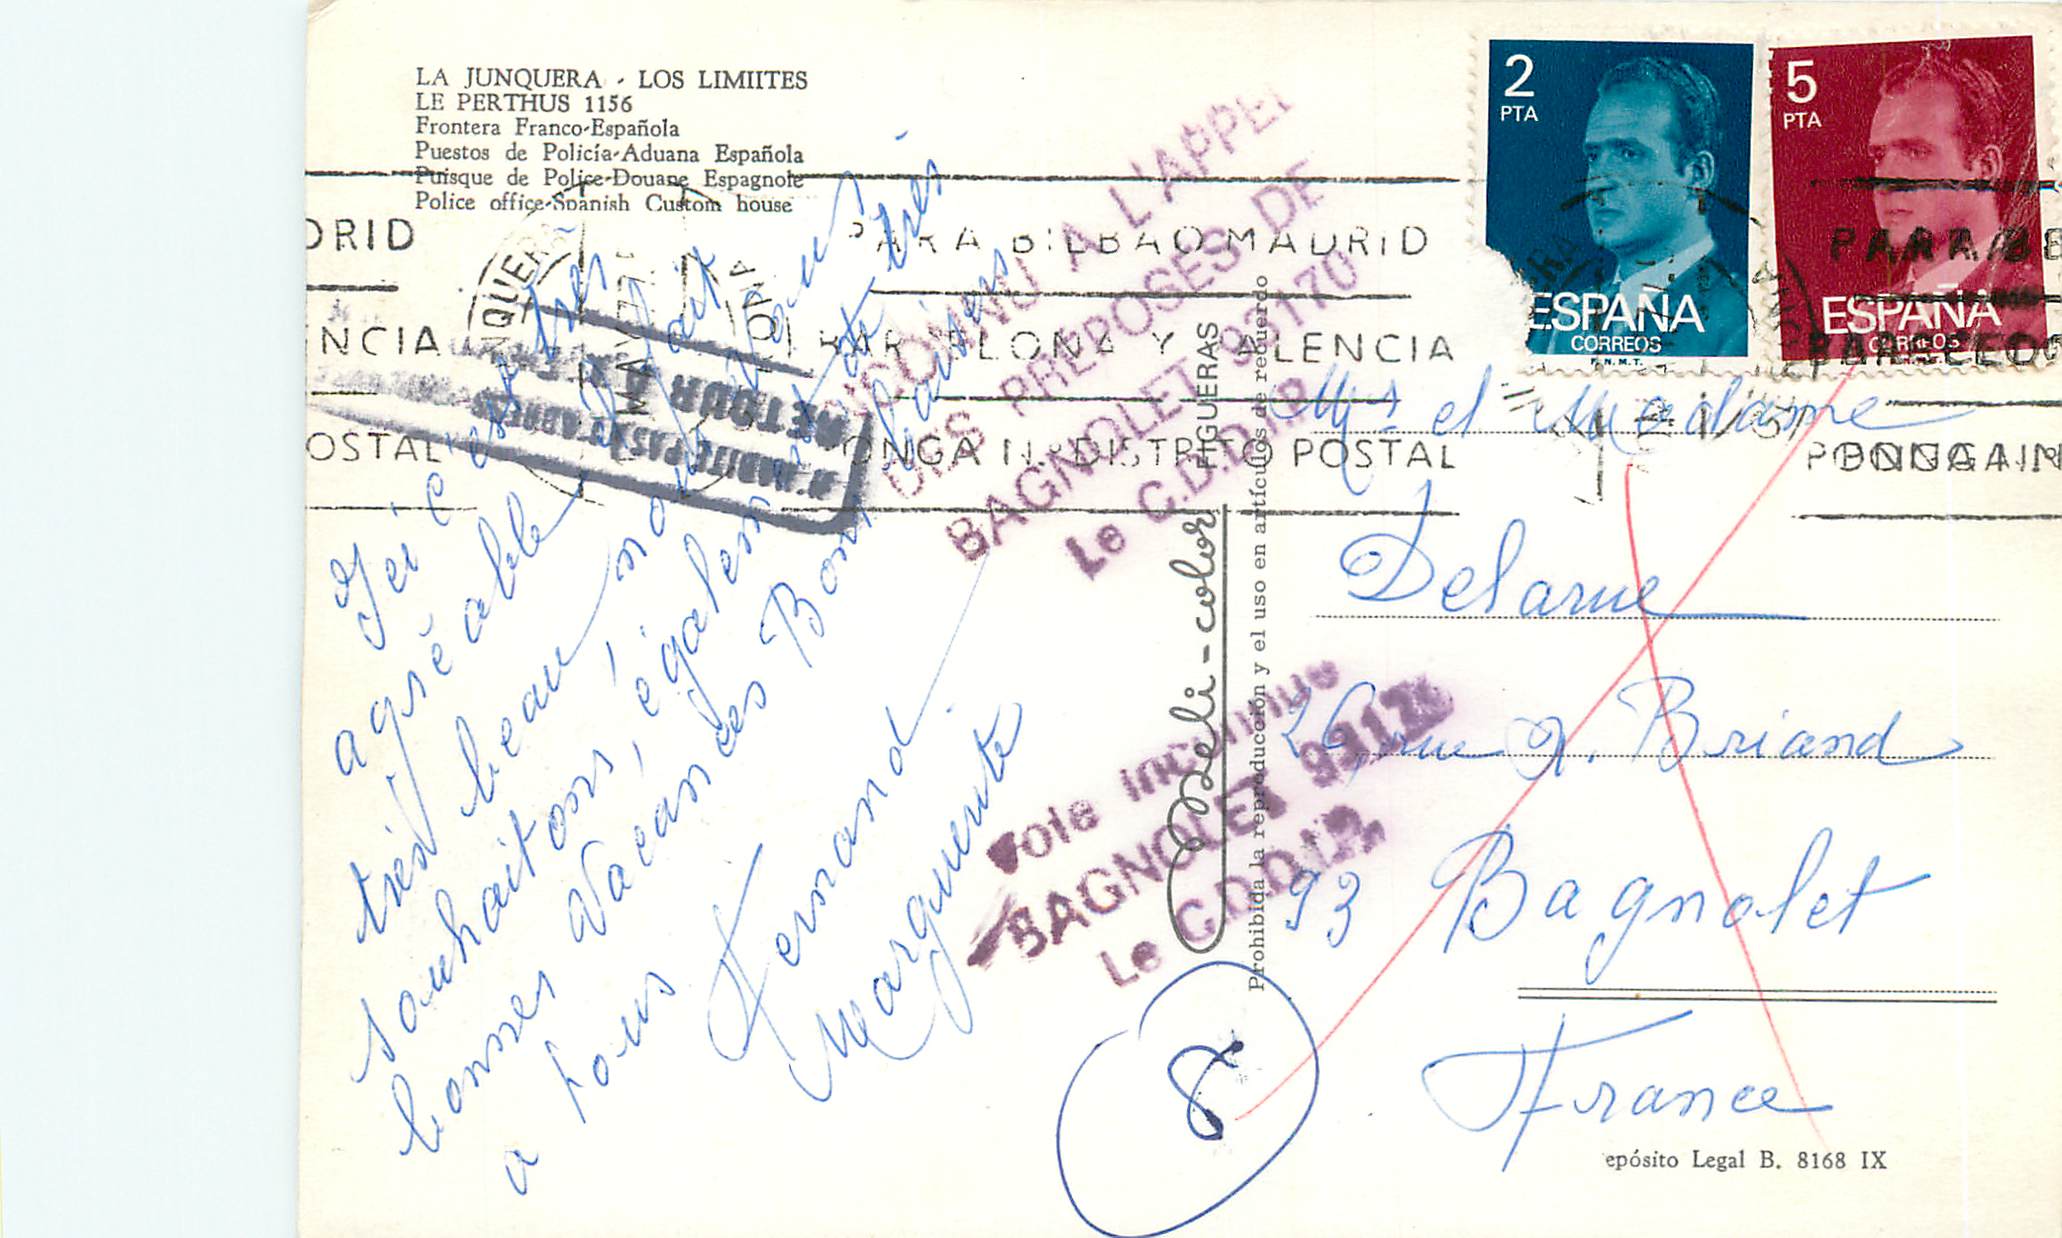 LA JUNQUERA - LOS LIMIITES
LE PERTHUS 1156
Frontera Franco-Española
Puestos de Policía-Aduana Española
Puisque de Police-Douane Espagnole
Police office-Spanish Custom house
2
PTA
ESPAÑA
CORREOS
F.N.M.T.
5
PTA
ESPAÑA
CORREOS
DRID
PARA BILBAO MADRID
NCIA
BARCELONA Y VALENCIA
OSTAL
PONGA N.º DISTRITO POSTAL
INCONNU A L'APPEL
DES PREPOSES DE
BAGNOLET 93170
Le C.D.D.I.P.
RETOUR A L'
N'HABITE PAS
Ici c'est très
agréable il fait
très beau nous vous
souhaitons, également de très
bonnes Vacances Bons baisers
a tous
Fernand
Marguerite
FIGUERAS
Meli-color
Prohibida la reproducción y el uso en artículos de recuerdo
Voie inconnue
BAGNOLET 93170
Le C.D.D.I.P.
Mr et Madame
Delarue
26 rue A. Briand
93 Bagnolet
France
epósito Legal B. 8168 IX